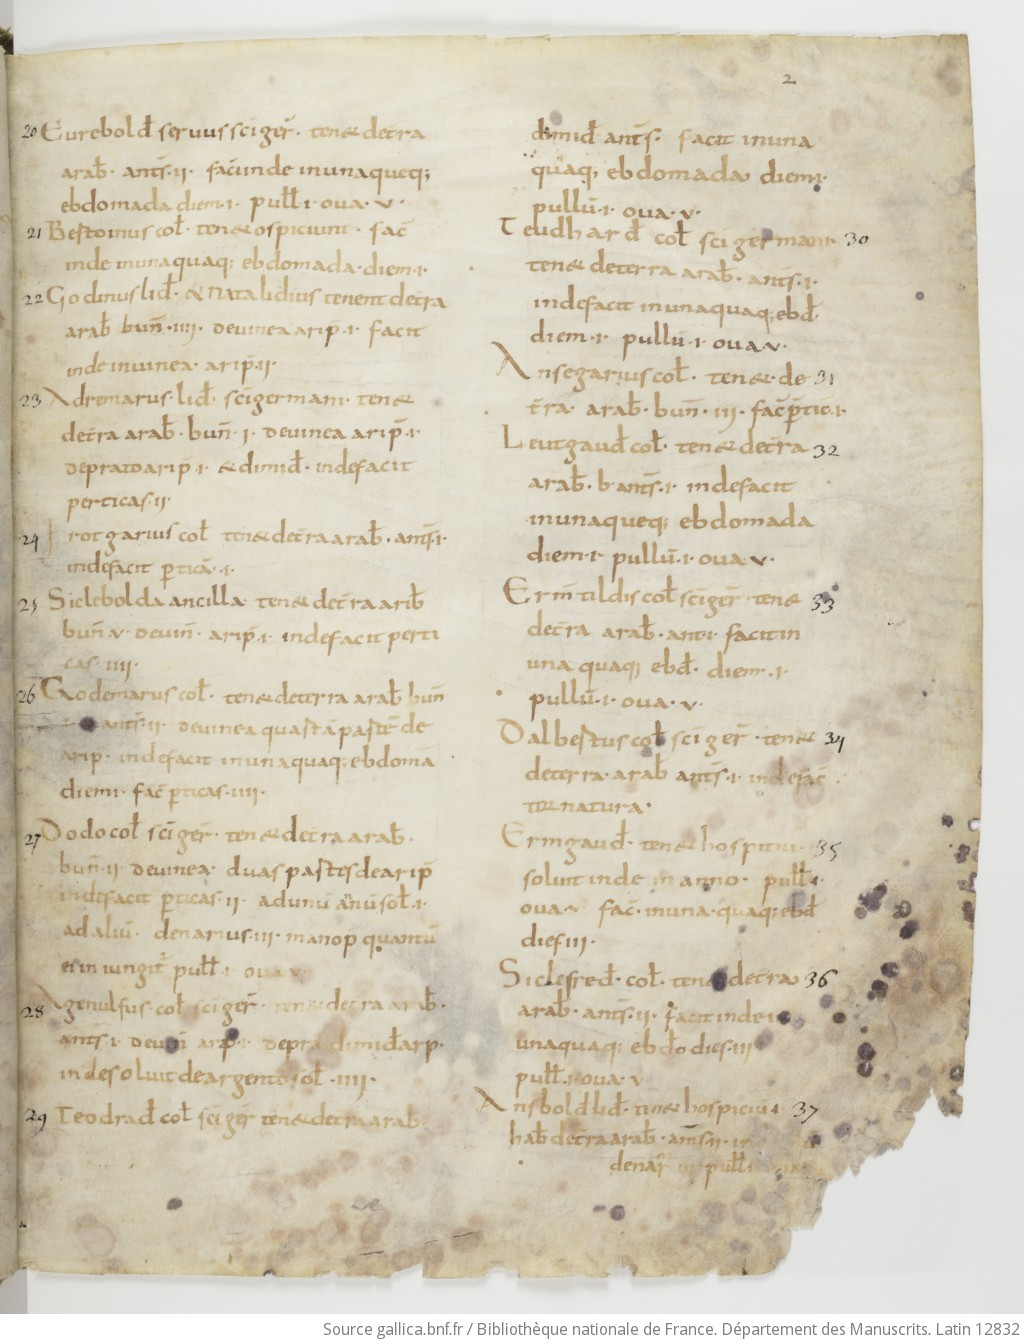 2
20 Eurebold̄ seruus sc̄i ger̄. ten& de tr̄a
arab̄. ant̄s. ii. fac̄ inde in unaqueq;
ebdomada diem. i. pull̄. i. oua. v.
21 Bestoinus col̄. ten& ospicium. fac̄
inde in unaquaq; ebdomada. diem. i.
22 Godinus lid̄. & natalidius tenent de tr̄a
arab̄ bun̄. iiii. de uinea arip̄. i. facit
inde in uinea. arip̄. ii.
23 Adremarus. lid̄. sc̄i germani. ten&
de tr̄a arab̄. bun̄. i. de uinea arip̄. i.
de prato arip̄. i. & dimid̄. inde facit
perticas. ii.
24 Frotgarius col̄ ten& de tr̄a arab̄. ant̄s. i.
inde facit p̄ticā. i.
25 Siclebolda ancilla ten& de tr̄a arib̄
bun̄ v. de uin̄. arip̄. i. inde facit perti
cas. iiii.
26 Godemarus col̄. ten& de terra arab̄ bun̄
ant̄s. ii. de uinea quastā pastē de
arip. inde facit in unaquaq; ebdomā
diem. i. fac̄ p̄ticas. iiii.
27 Dodo col̄ sc̄i ger̄. ten& de tr̄a arab̄.
bun̄. ii. de uinea. duas pastes de arip̄
inde facit p̄ticas. ii. ad unū anū sol̄. i.
ad aliū. denarius. iii. manop̄ quantū
ei iniungit̄ pull̄. i. oua v.
28 Agenulfus col̄ sc̄i ger̄. ten& de tr̄a arab̄.
ant̄s. i. de uin̄ arp̄. i. de pra dimid̄ arp̄.
inde soluit de argento sol̄. iiii.
29 Teodrad̄ col̄ sc̄i ger̄ ten& de tr̄a arab̄
dimid̄ ant̄s. facit in una
quaq; ebdomada diem. i.
pullū. i. oua. v.
Teudhard̄ col̄ sc̄i germani. 30
ten& de terra arab̄. ant̄s. i.
inde facit in unaquaq; ebd̄.
diem. i. pullū. i. oua. v.
Ansegarius col̄. ten& de 31
tr̄a. arab̄. bun̄. iii. fac̄ p̄tic. i.
Leutgaud̄ col̄. ten& de tr̄a 32
arab̄. b ant̄s. i. inde facit
in unaqueq; ebdomada
diem. i. pullū. i. oua v.
Ermtildis col̄ sc̄i ger̄. ten& 33
de tr̄a arab̄. ant. i. facit in
una quaq; ebd̄. diem. i.
pullū. i. oua. v.
Dalbestus col̄ sc̄i ger̄. ten& 34
de terra. arab̄ ant̄s. i. inde fac̄
ternatura.
Ermgaud̄. ten& hospitiū. 35
soluit inde in anno. pull̄. i.
oua v fac̄. in una quaq; ebd̄
dies iii.
Siclefred̄. col̄. ten& de tr̄a 36
arab̄. ant̄s. ii. facit inde i
unaquaq; ebdo dies. iii
pull̄. i. oua. v
Ansbold lid̄. ten& hospiciū. 37
hab̄ de tr̄a arab̄. ant̄s. ii.
denar̄ iii pull̄
Source gallica.bnf.fr / Bibliothèque nationale de France. Département des Manuscrits. Latin 12832